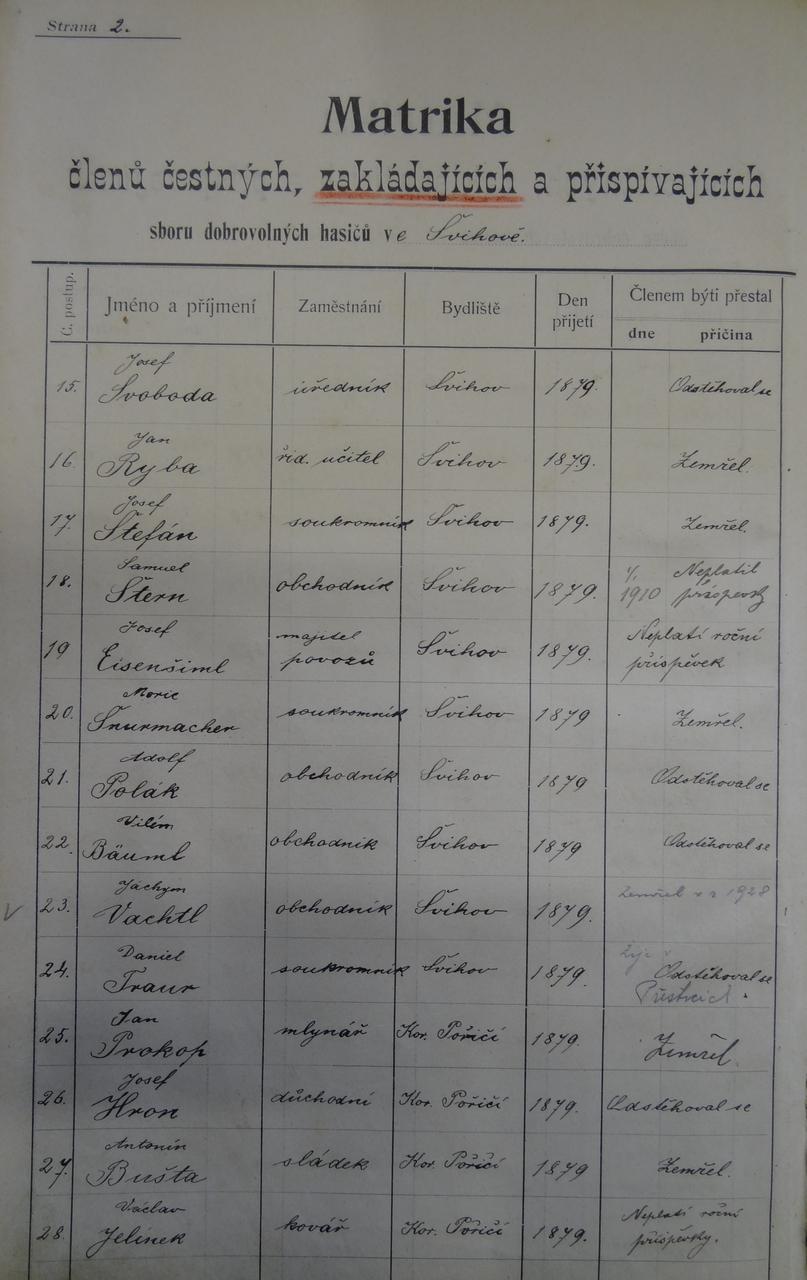 Strana 2.
Matrika
členů čestných, zakládajících a přispívajících
sboru dobrovolných hasičů ve Švihově.
Č. postup. Jméno a příjmení Zaměstnání Bydliště Den přijetí Členem býti přestal
dne příčina
Josef
15. Svoboda úředník Švihov 1879. Odstěhoval se
Jan
16. Ryba říd. učitel Švihov 1879. Zemřel.
Josef
17. Štefán soukromník Švihov 1879. Zemřel.
Samuel 1/1 Neplatil
18. Štern obchodník Švihov 1879. 1910 příspěvky
Josef majitel Neplatí roční
19 Eisenšiml povozů Švihov 1879. příspěvek
Moric
20. Šnurmacher soukromník Švihov 1879 Zemřel.
Adolf
21. Polák obchodník Švihov 1879 Odstěhoval se
Vilém
22. Bäuml obchodník Švihov 1879 Odstěhoval se
Jáchym Zemřel v r 1928
23. Vachtl obchodník Švihov 1879.
Daniel Žije v
24. Traur soukromník Švihov 1879. Odstěhoval se
Jan
25. Prokop mlynář Kor. Poříčí 1879. Zemřel.
Josef
26. Hron důchodní Kor. Poříčí 1879. Odstěhoval se
Antonín
27. Bušta sládek Kor. Poříčí 1879 Zemřel.
Václav Neplatí roční
28. Jelínek kovář Kor. Poříčí 1879. příspěvky.